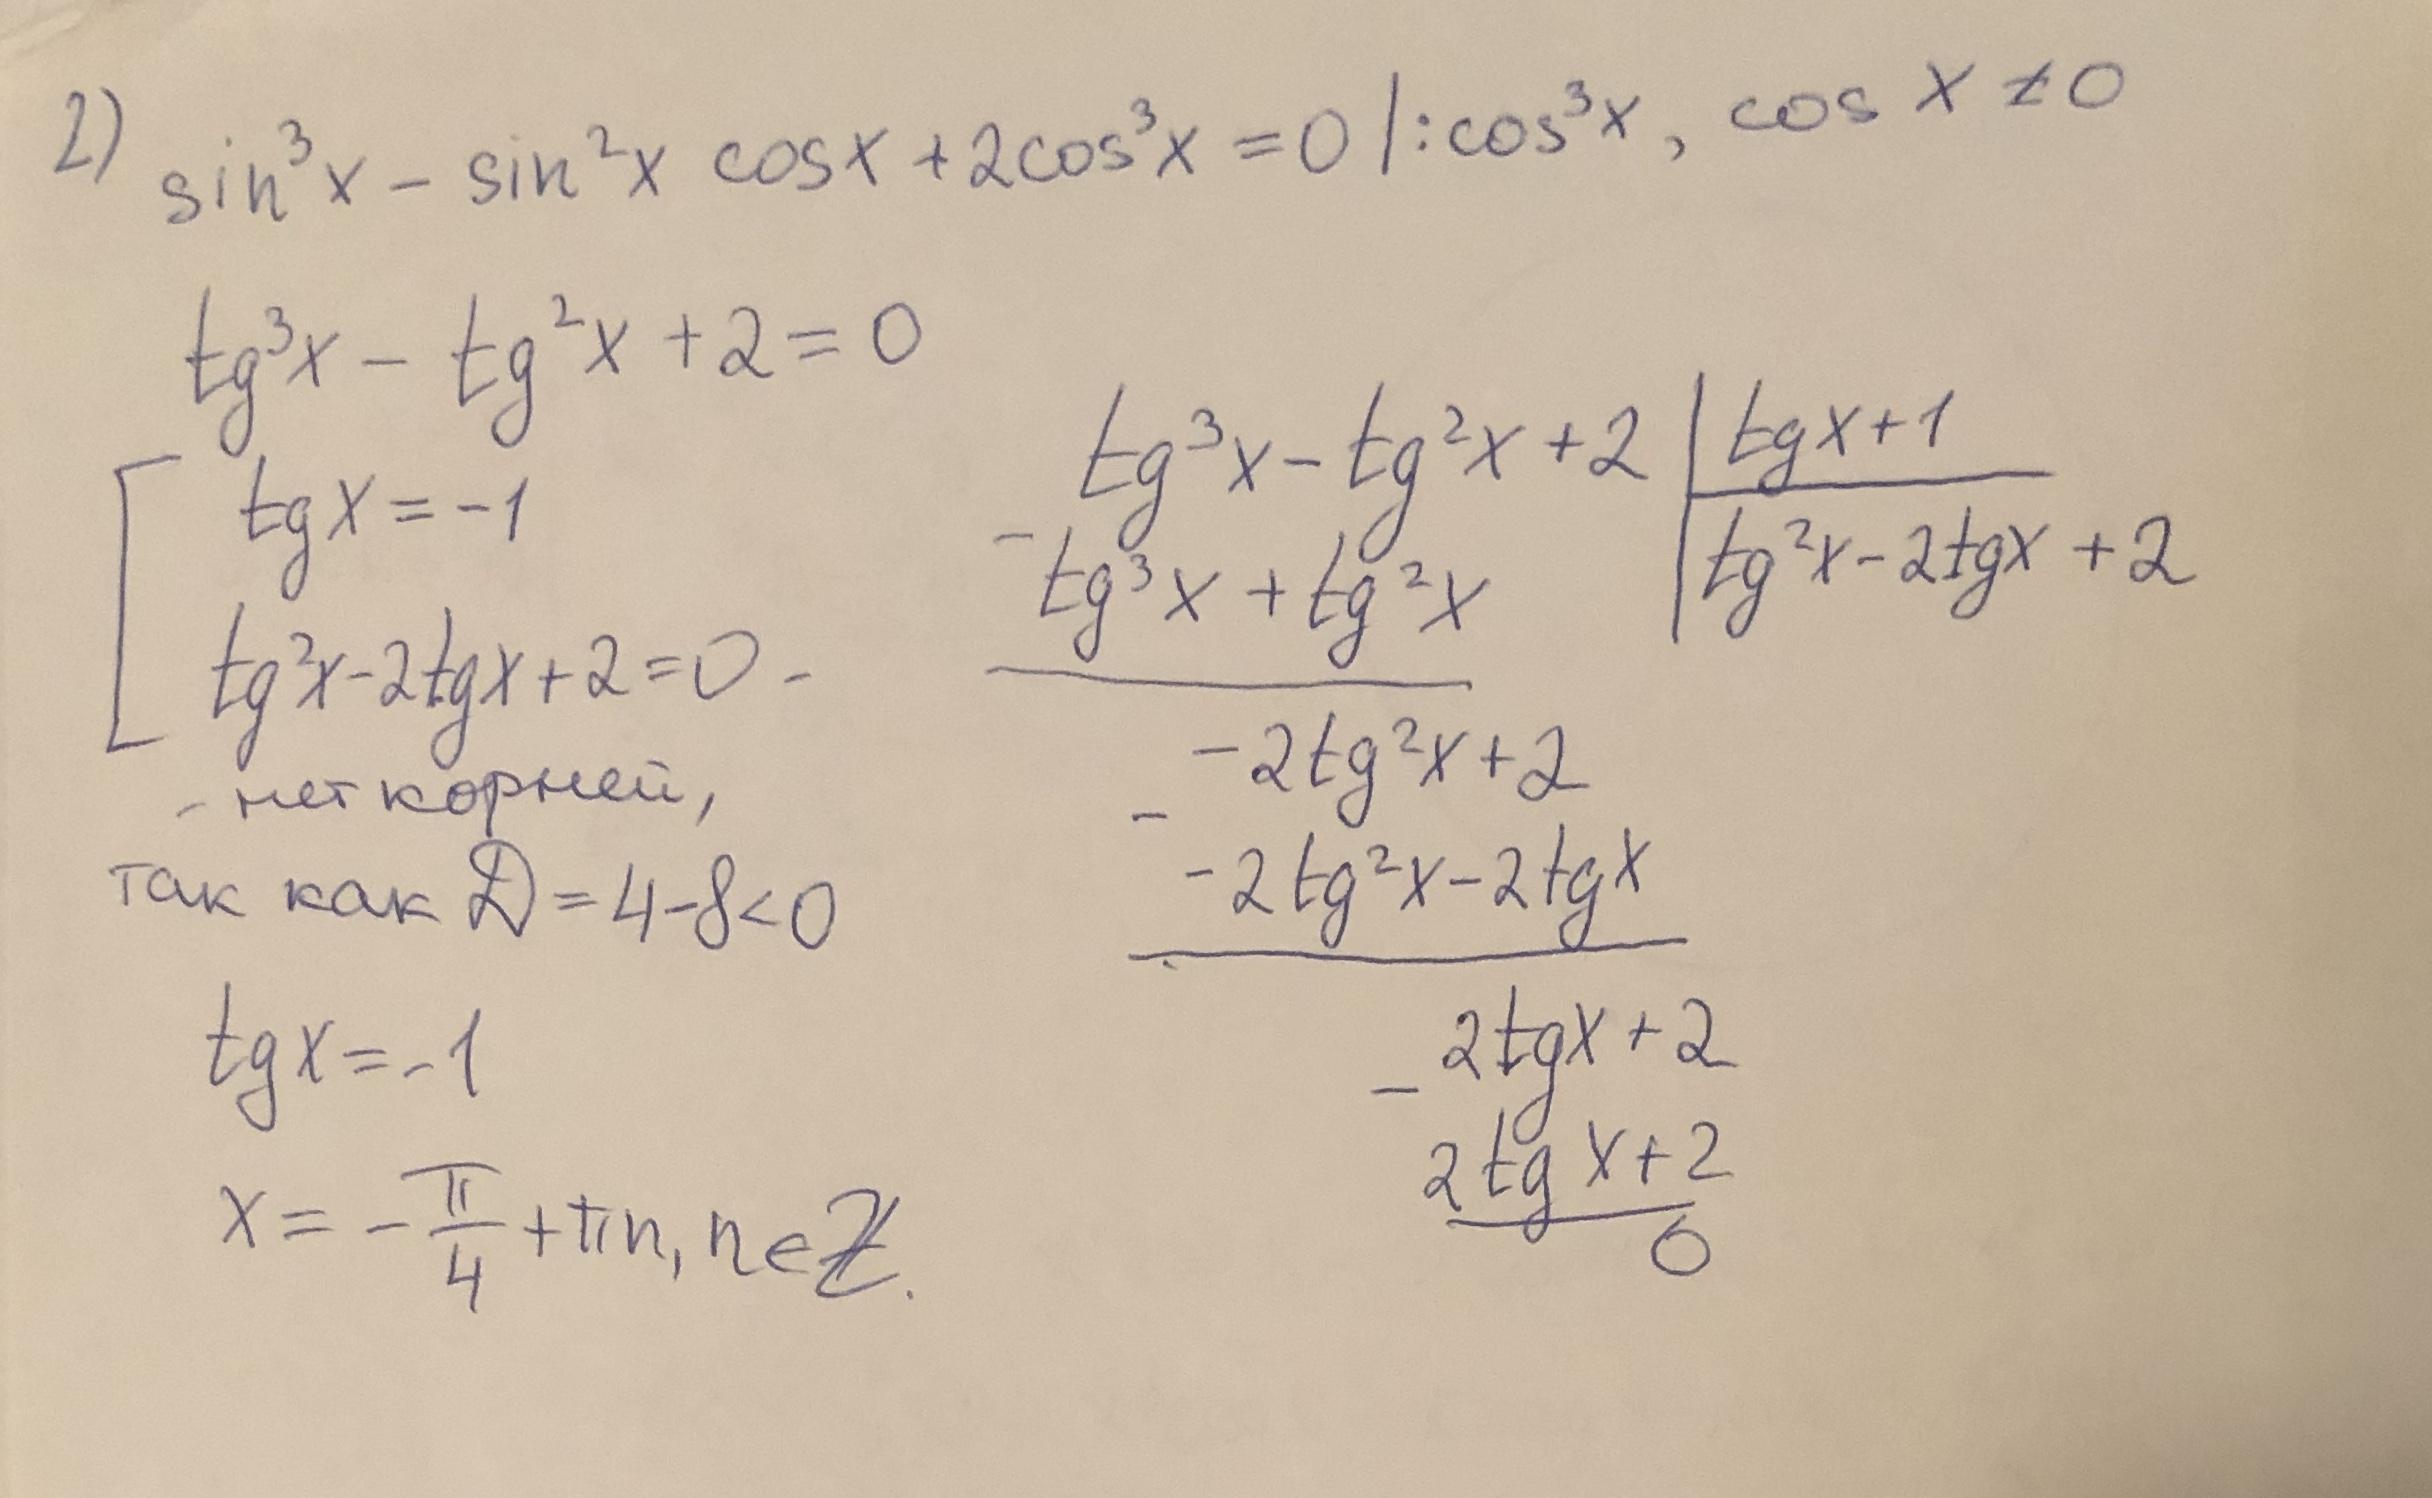 2) sin³x - sin²x cosx + 2cos³x = 0 |:cos³x, cos x ≠ 0
tg³x - tg²x + 2 = 0
tgx = -1
tg²x - 2tgx + 2 = 0 -
- нет корней,
так как D = 4 - 8 < 0
tgx = -1
x = -π/4 + πn, n ∈ Z.
tg³x - tg²x + 2 | tgx + 1
- tg³x + tg²x | tg²x - 2tgx + 2
-2tg²x + 2
- -2tg²x - 2tgx
2tgx + 2
- 2tgx + 2
0